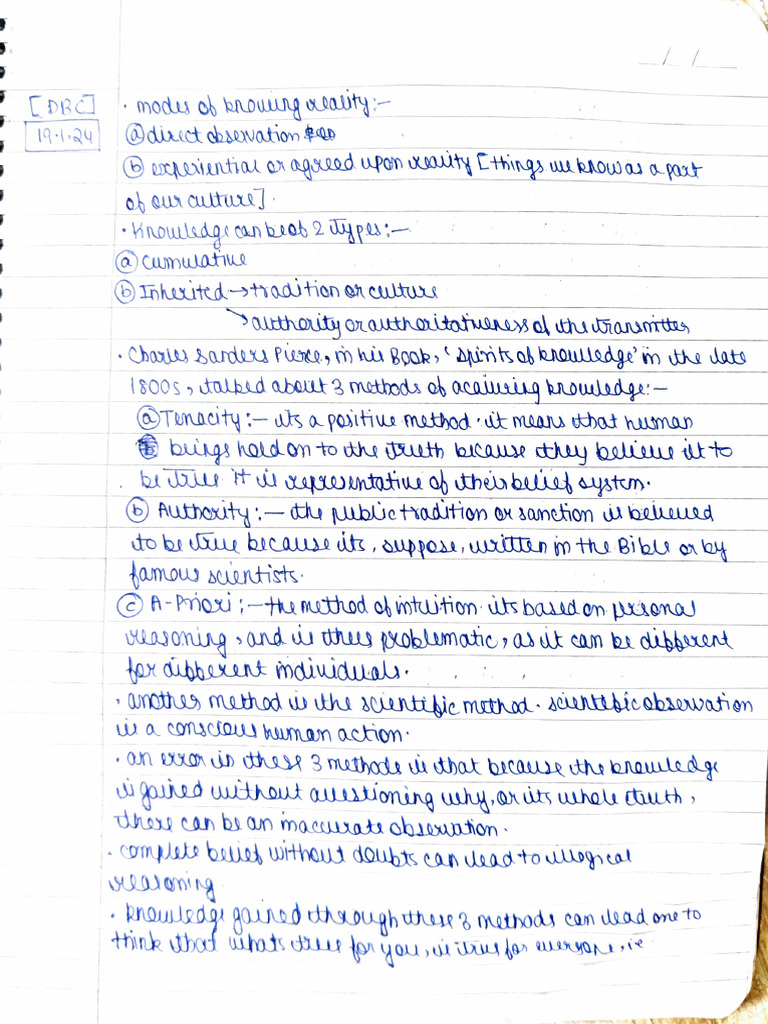 / /
[DBC]
19.1.24
· modes of knowing reality:-
ⓐ direct observation
ⓑ experiential or agreed upon reality [things we know as a part
of our culture].
· Knowledge can be of 2 types:-
ⓐ cumulative
ⓑ Inherited → tradition or culture
↘ authority or authoritativeness of the transmitter
· Charles Sanders Pierce, in his Book, 'Spirits of knowledge' in the late
1800s, talked about 3 methods of acquiring knowledge:-
ⓐ Tenacity:- its a positive method. it means that human
beings hold on to the truth because they believe it to
be true it is representative of their belief system.
ⓑ Authority:- the public tradition or sanction is believed
to be true because its, suppose, written in the Bible or by
famous scientists.
ⓒ A-Priori:- the method of intuition. its based on personal
reasoning, and is thus problematic, as it can be different
for different individuals.
· another method is the scientific method. scientific observation
is a conscious human action.
· an error in these 3 methods is that because the knowledge
is gained without questioning why, or its whole truth,
there can be an inaccurate observation.
· complete belief without doubts can lead to illogical
reasoning
· knowledge gained through these 3 methods can lead one to
think that whats true for you, is true for everyone, ie